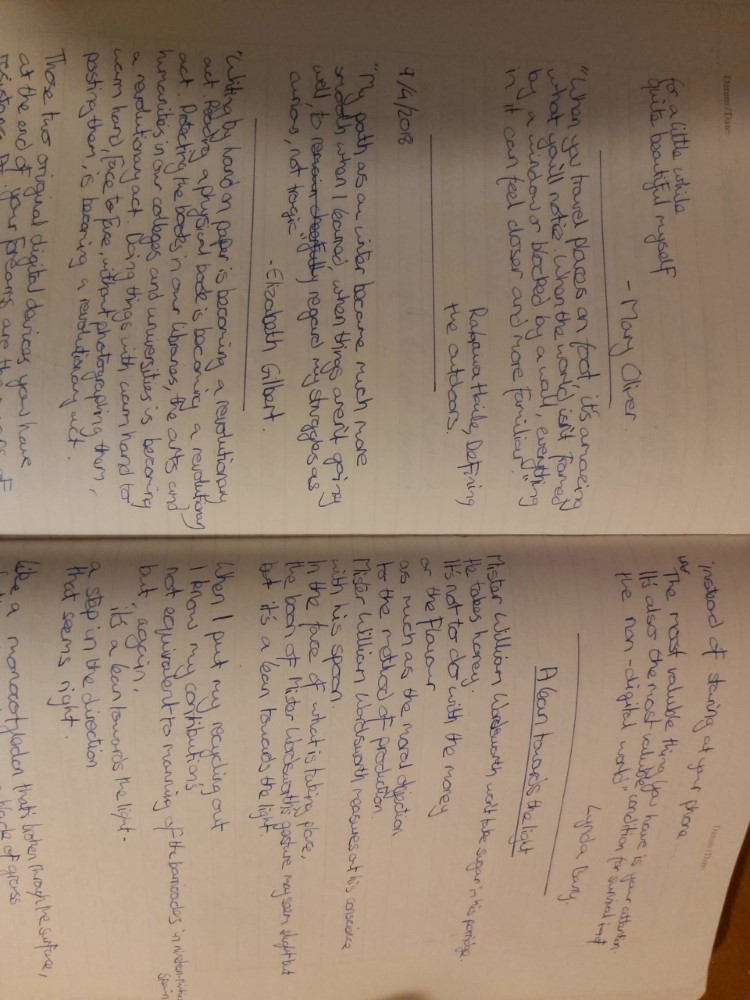 Datum / Date:
for a little while
quite beautiful myself
- Mary Oliver.
"When you travel places on foot, it's amazing
what you'll notice. When the world isn't framed
by a window or blocked by a wall, everything
in it can feel closer and more familiar."
Hoile, Defining
the outdoors.
9/4/2018
"My path as an writer became much more
smooth when I learned, when things aren't going
well, to regard my struggles as
curious, not tragic"
- Elizabeth Gilbert.
"Writing by hand on paper is becoming a revolutionary
act. Reading a physical book is becoming a revolutionary
act. Protecting the books in our libraries, the arts and
humanities in our colleges and universities is becoming
a revolutionary act. Doing things with warm hand to
warm hand, face to face, without photographing them,
posting them, is becoming a revolutionary act.
Those two original digital devices you have
at the end of your forearms are the means of
resistance.
Datum / Date:
instead of staring at your phone...
The most valuable thing you have is your attention.
It's also the most valuable condition for survival in of
the non-digital world"
Lynda Barry.
A lean towards the light
Mister William Wordsworth won't take sugar in his porridge
He takes honey.
It's not to do with the money
or the flavour
as much as the moral objection
to the method of production.
Mister William Wordsworth measures out his conscience
with his spoon.
In the face of what is taking place,
the boon of Mister Wordsworth's gesture may seem slight but
but it's a lean towards the light.
When I put my recycling out
I know my contribution's
not equivalent to manning of the barricades in
but, again,
it's a lean towards the light -
a step in the direction
that seems right.
Like a monocotyledon that's broken through the surface,
blade of grass